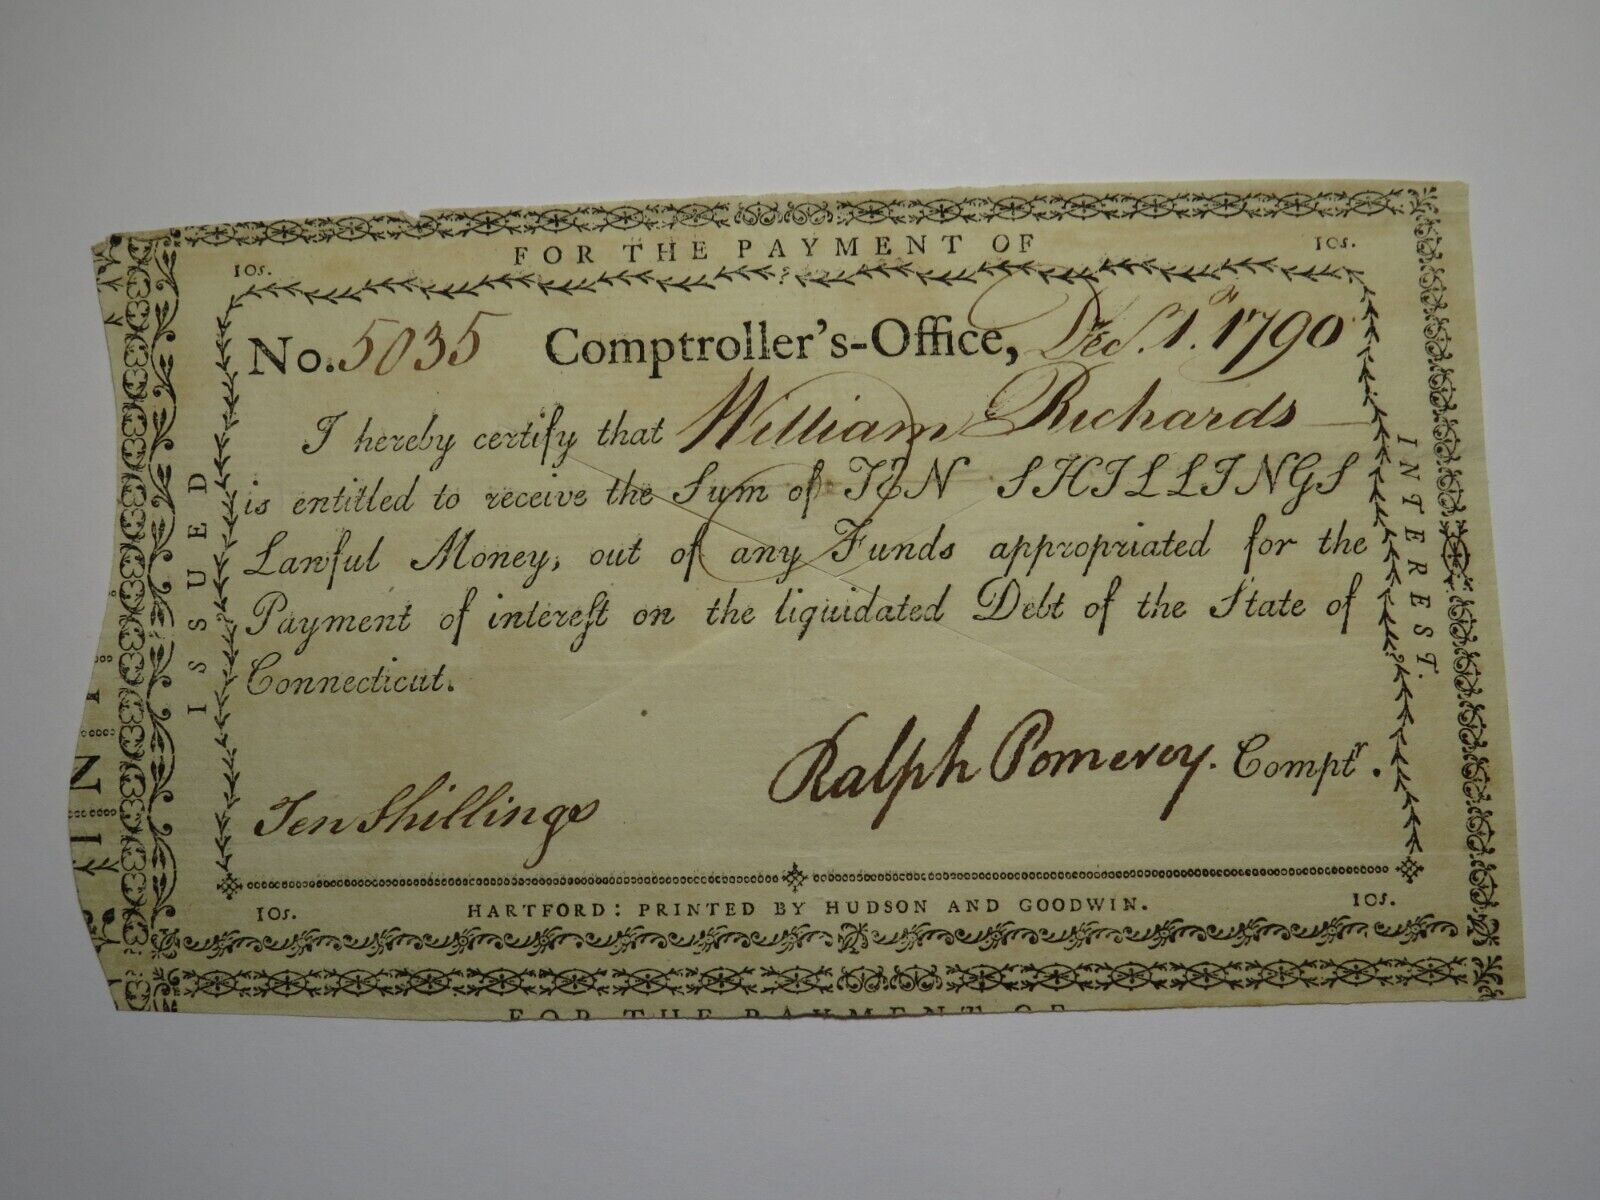 FOR THE PAYMENT OF
10s. 10s.
No. 5035 Comptroller's-Office, Dec. 1st 1790
I hereby certify that William Richards
is entitled to receive the Sum of TEN SHILLINGS
Lawful Money, out of any Funds appropriated for the
Payment of interest on the liquidated Debt of the State of
Connecticut.
Ralph Pomeroy. Comptr.
Ten Shillings
ISSUED
INTEREST.
10s. HARTFORD: PRINTED BY HUDSON AND GOODWIN. 10s.
FOR THE PAYMENT OF